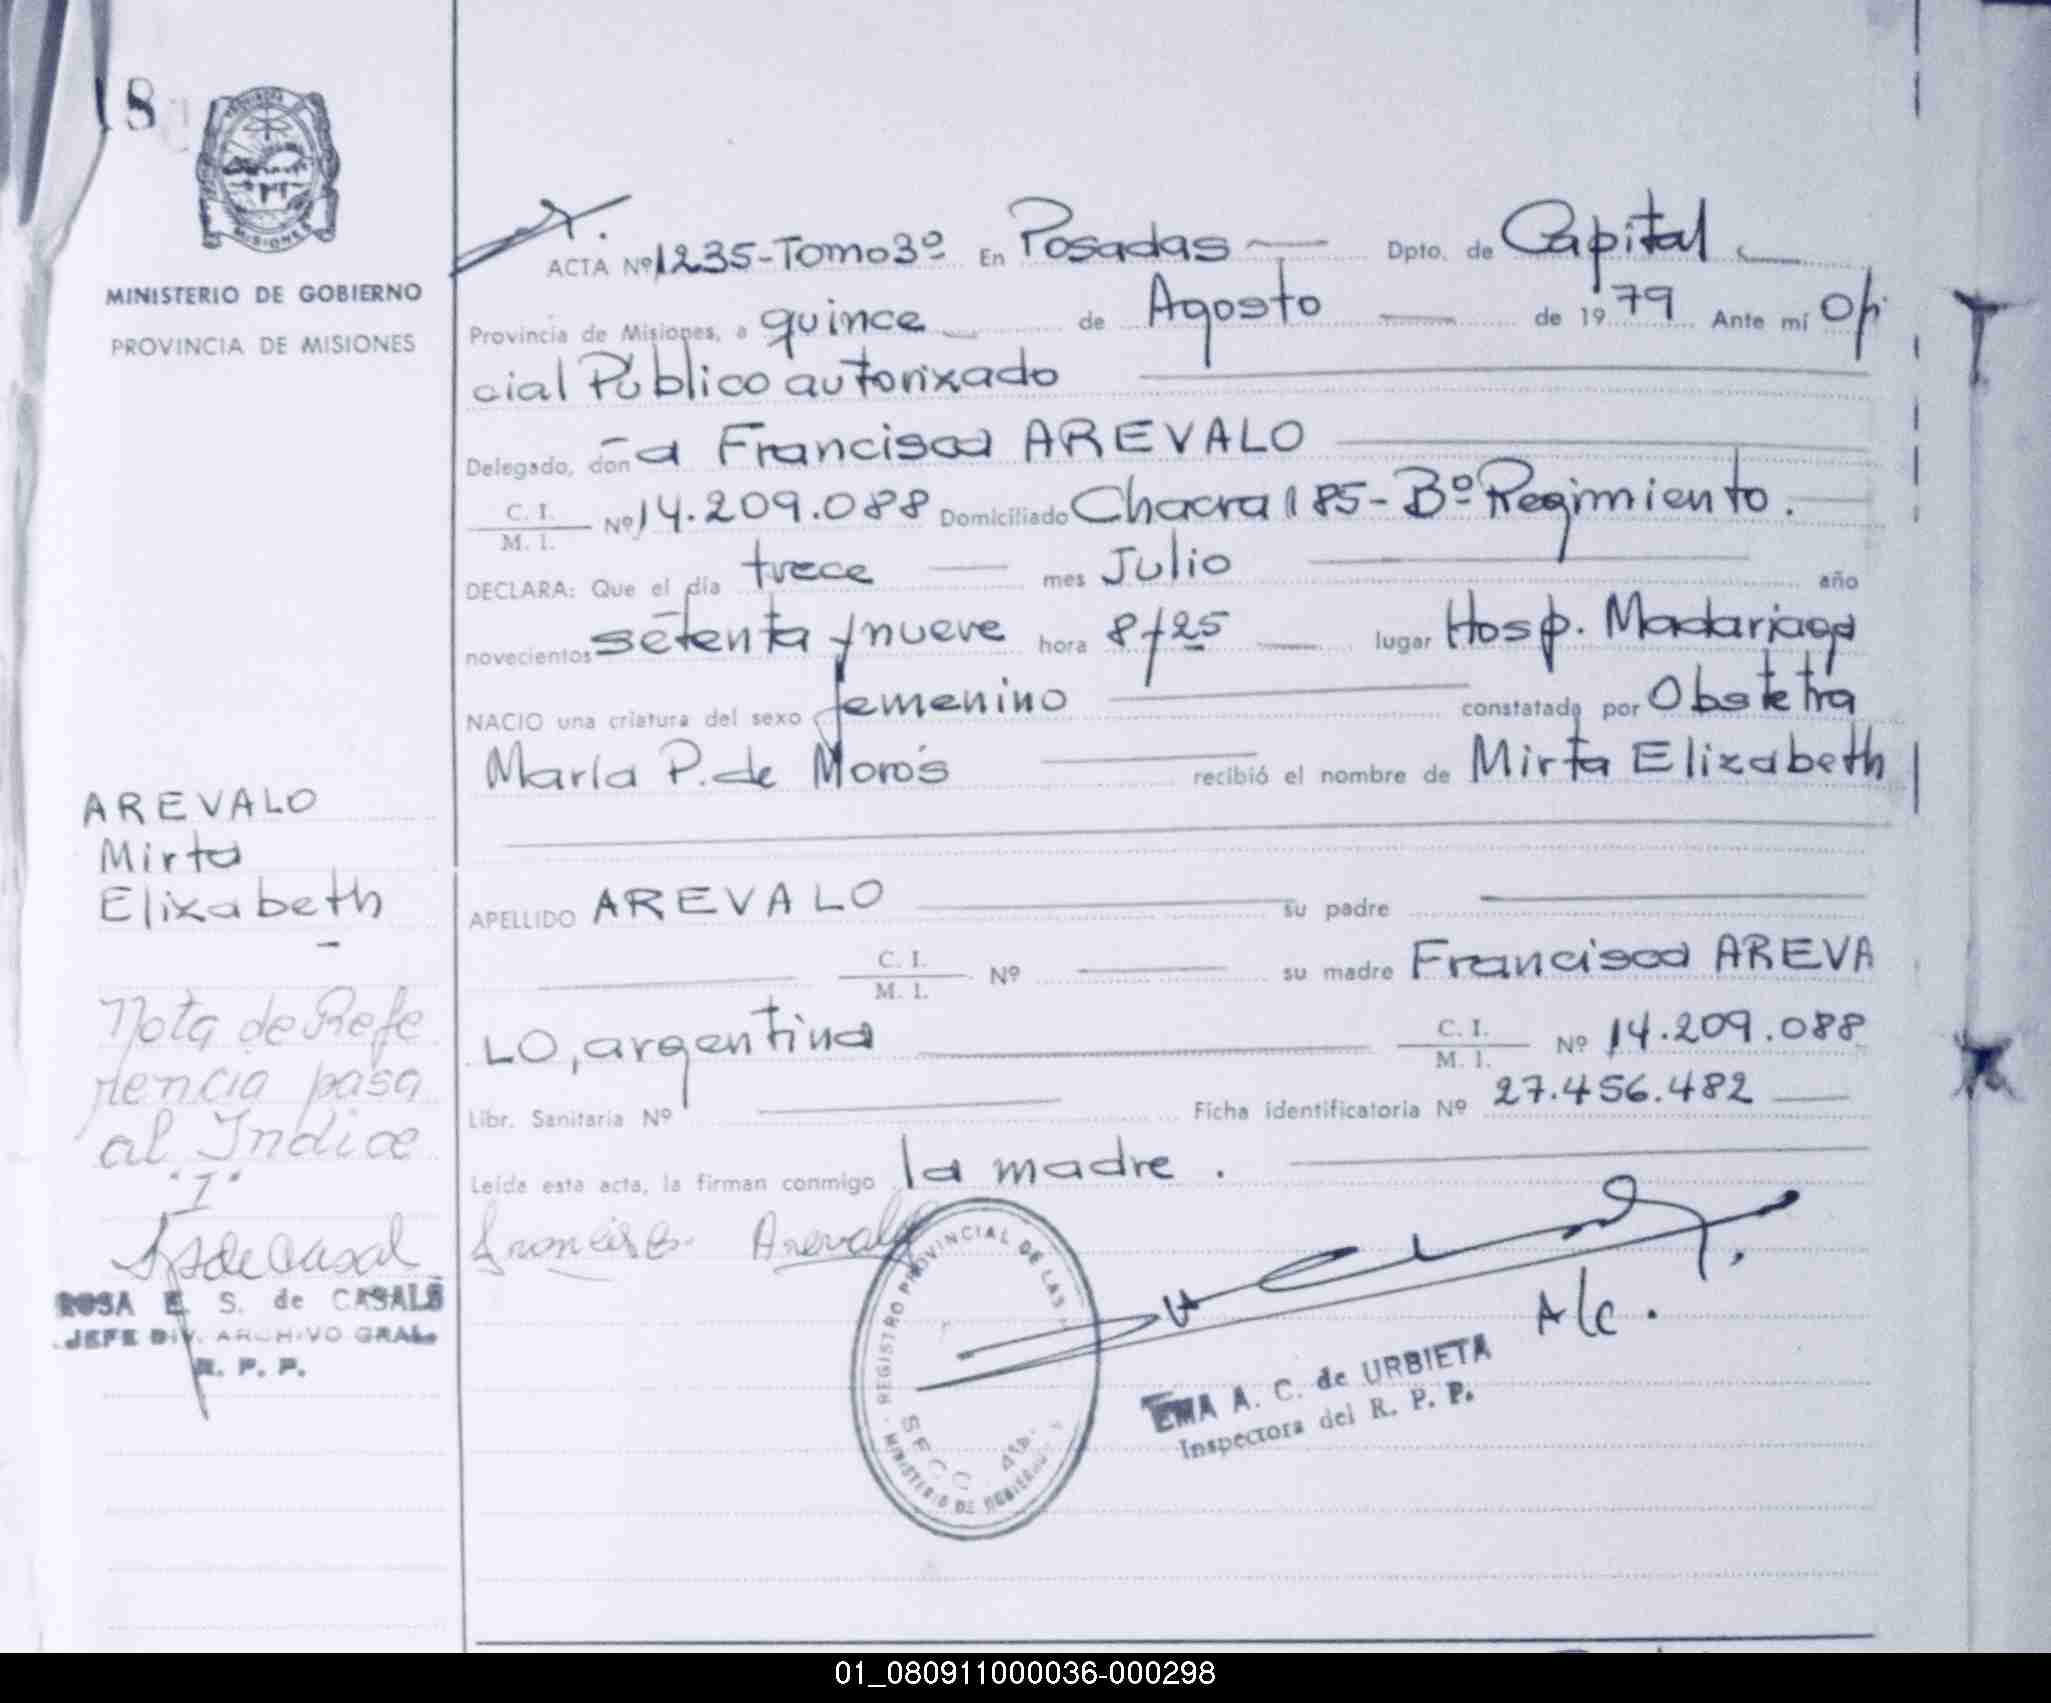 18
PROVINCIA
MISIONES
MINISTERIO DE GOBIERNO
PROVINCIA DE MISIONES
ACTA Nº 1235-Tomo 3º En Posadas Dpto. de Capital
Provincia de Misiones, a quince de Agosto de 1979 Ante mí Ofi
cial Público autorizado
Delegado, doña Francisca AREVALO
C. I.
M. I. Nº 14.209.088 Domiciliado Chacra 185-Bº Regimiento.
DECLARA: Que el día trece mes Julio año
novecientos setenta y nueve hora 8 y 25 lugar Hosp. Madariaga
NACIO una criatura del sexo femenino constatada por Obstetra
María P. de Morós recibió el nombre de Mirta Elizabeth
APELLIDO AREVALO su padre
C. I.
M. I. Nº su madre Francisca AREVA
LO, argentina C. I.
M. I. Nº 14.209.088
Libr. Sanitaria Nº Ficha identificatoria Nº 27.456.482
Leída esta acta, la firman conmigo la madre.
Francisca Arevalo
A/c.
EMA A. C. de URBIETA
Inspectora del R. P. P.
REGISTRO PROVINCIAL DE LAS
MINISTERIO DE GOBIERNO
SECC. 4ta.
AREVALO
Mirta
Elizabeth
-
Nota de Refe
rencia pasa
al Indice
"I"
ROSA E. S. de CASALS
JEFE DIV. ARCHIVO GRAL.
R. P. P.
01_080911000036-000298